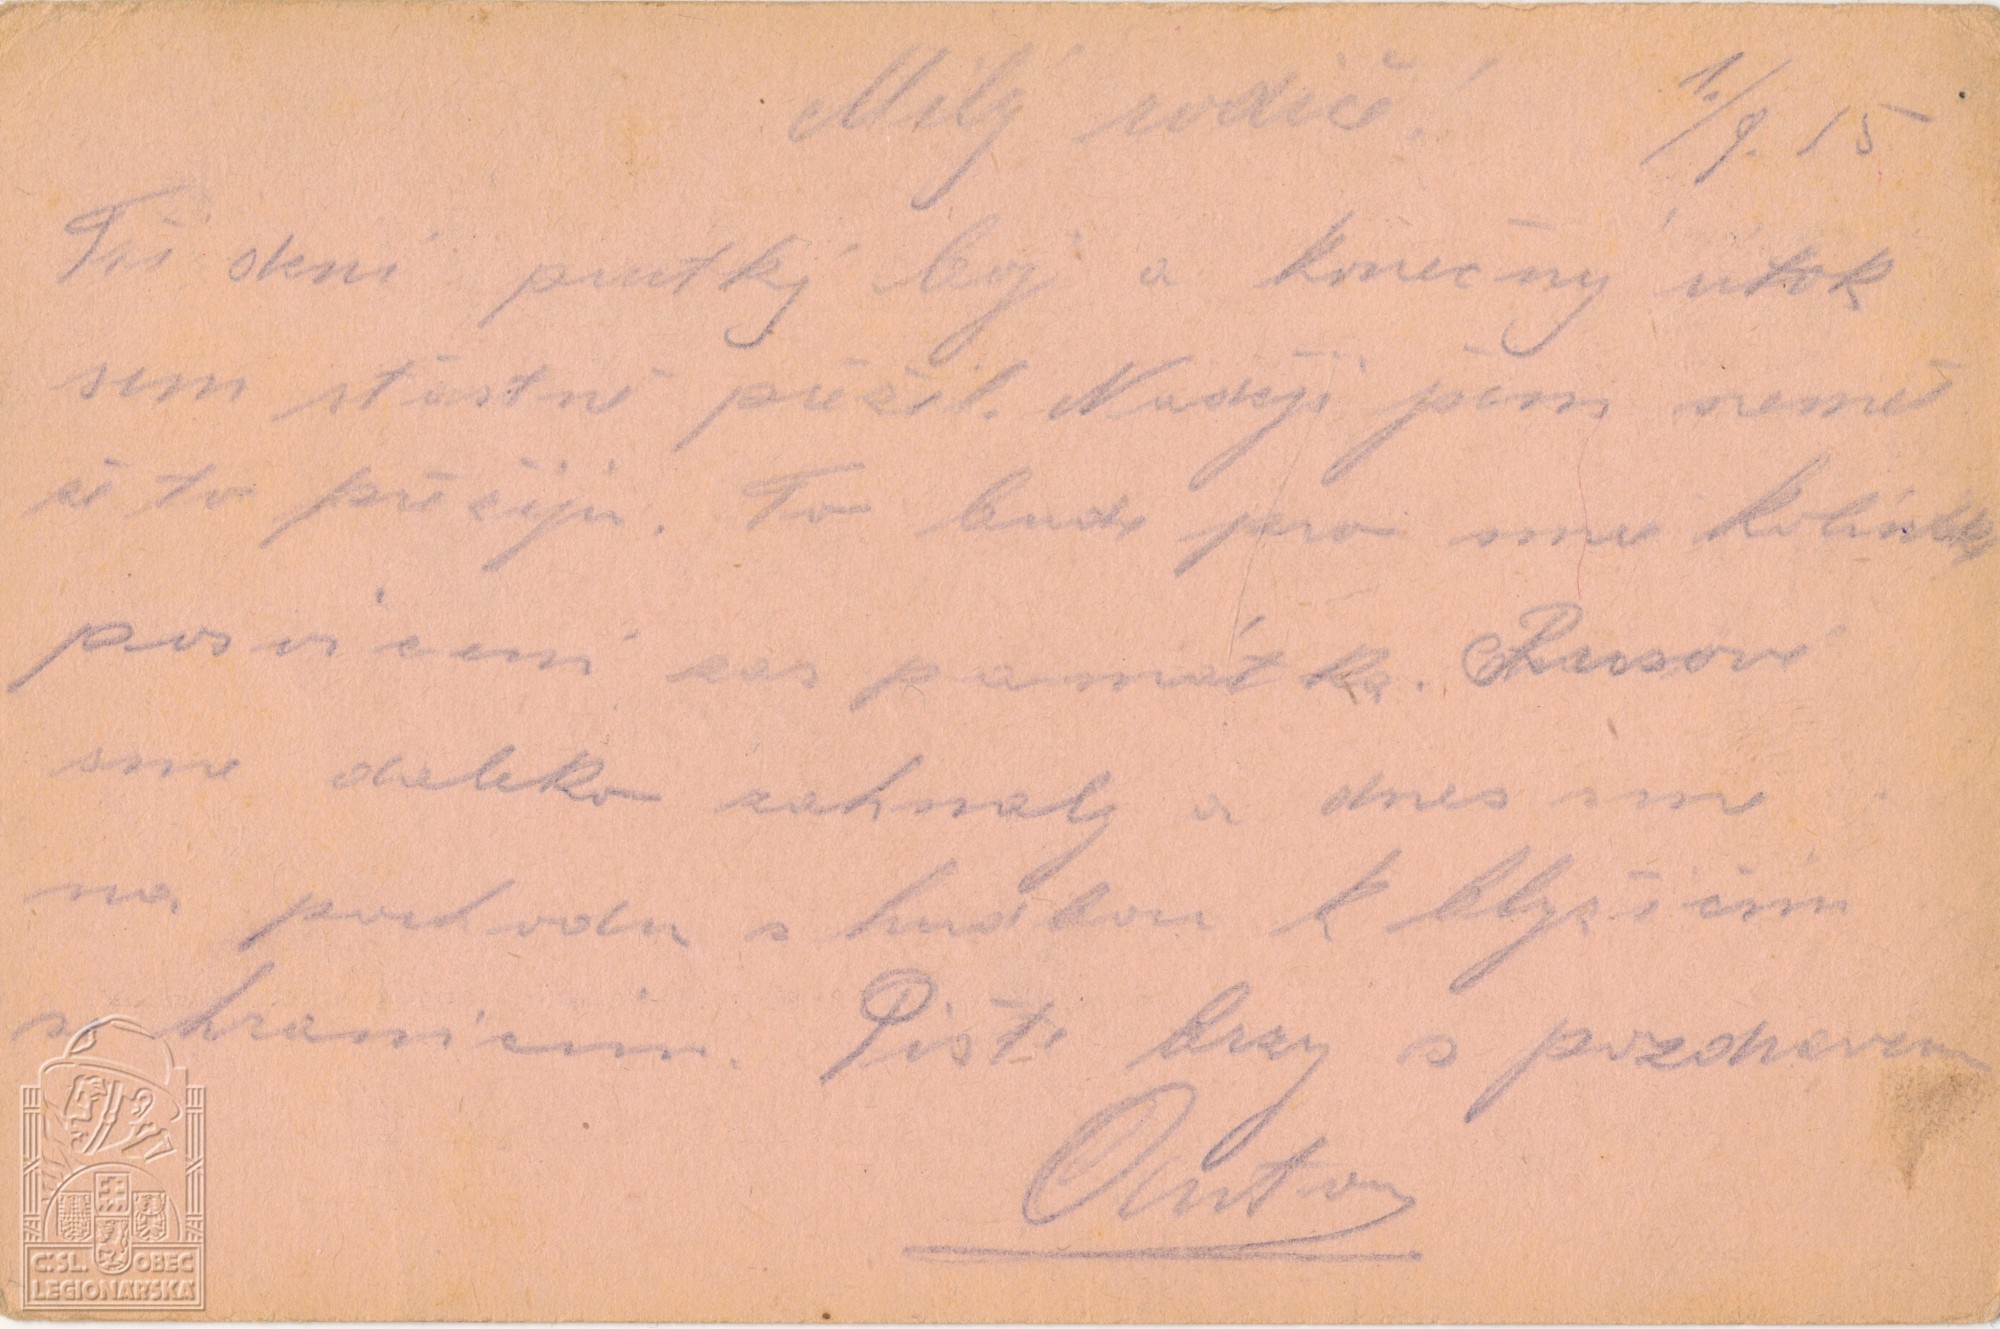 Milý rodiče! 1./9. 15
Tři dení prutký boj a konečný útok
sem šťastně přežil. Naději jsem neměl
že to přežiju. To bude pro mne kolínský
posvicení zas památka. Rusové
sme daleko zahnaly a dnes sme
na pochodu s hudbou k blyžičím
se hranicím. Pište brzy s pozdravem
Anton
Č.SL. OBEC
LEGIONÁŘSKÁ